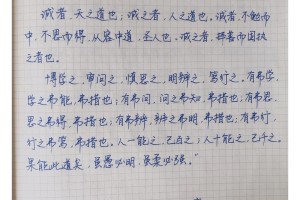 诚者，天之道也；诚之者，人之道也。诚者，不勉而
中，不思而得，从容中道，圣人也。诚之者，择善而固执
之者也。
博学之，审问之，慎思之，明辨之，笃行之。有弗学，
学之弗能，弗措也；有弗问，问之弗知，弗措也；有弗思，
思之弗得，弗措也；有弗辨，辨之弗明，弗措也；有弗行，
行之弗笃，弗措也。人一能之，己百之；人十能之，己千之。
果能此道矣，虽愚必明，虽柔必强。”